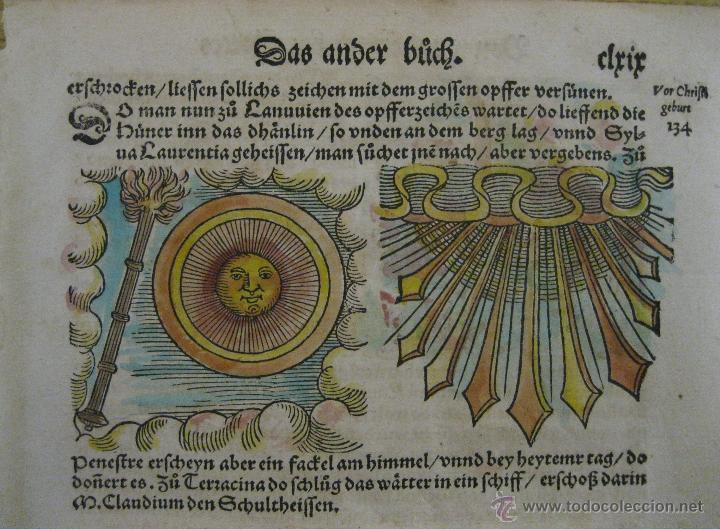 Das ander bůch.
clxix
erschrocken/liessen sollichs zeichen mit dem grossen opffer versünen.
Vor Christi
geburt
134
SO man nun zů Lanuuien des opfferzeichẽs wartet/do lieffend die
Hüner inn das dhänlin/so vnden an dem berg lag/vnnd Syl-
ua Laurentia geheissen/man sůchet jnẽ nach/aber vergebens. Zů
Penestre erscheyn aber ein fackel am himmel/vnnd bey heytemr tag/do
doñert es. Zů Terracina do schlůg das wätter in ein schiff/erschoß darin
M. Claudium den Schultheissen.
todocoleccion.net